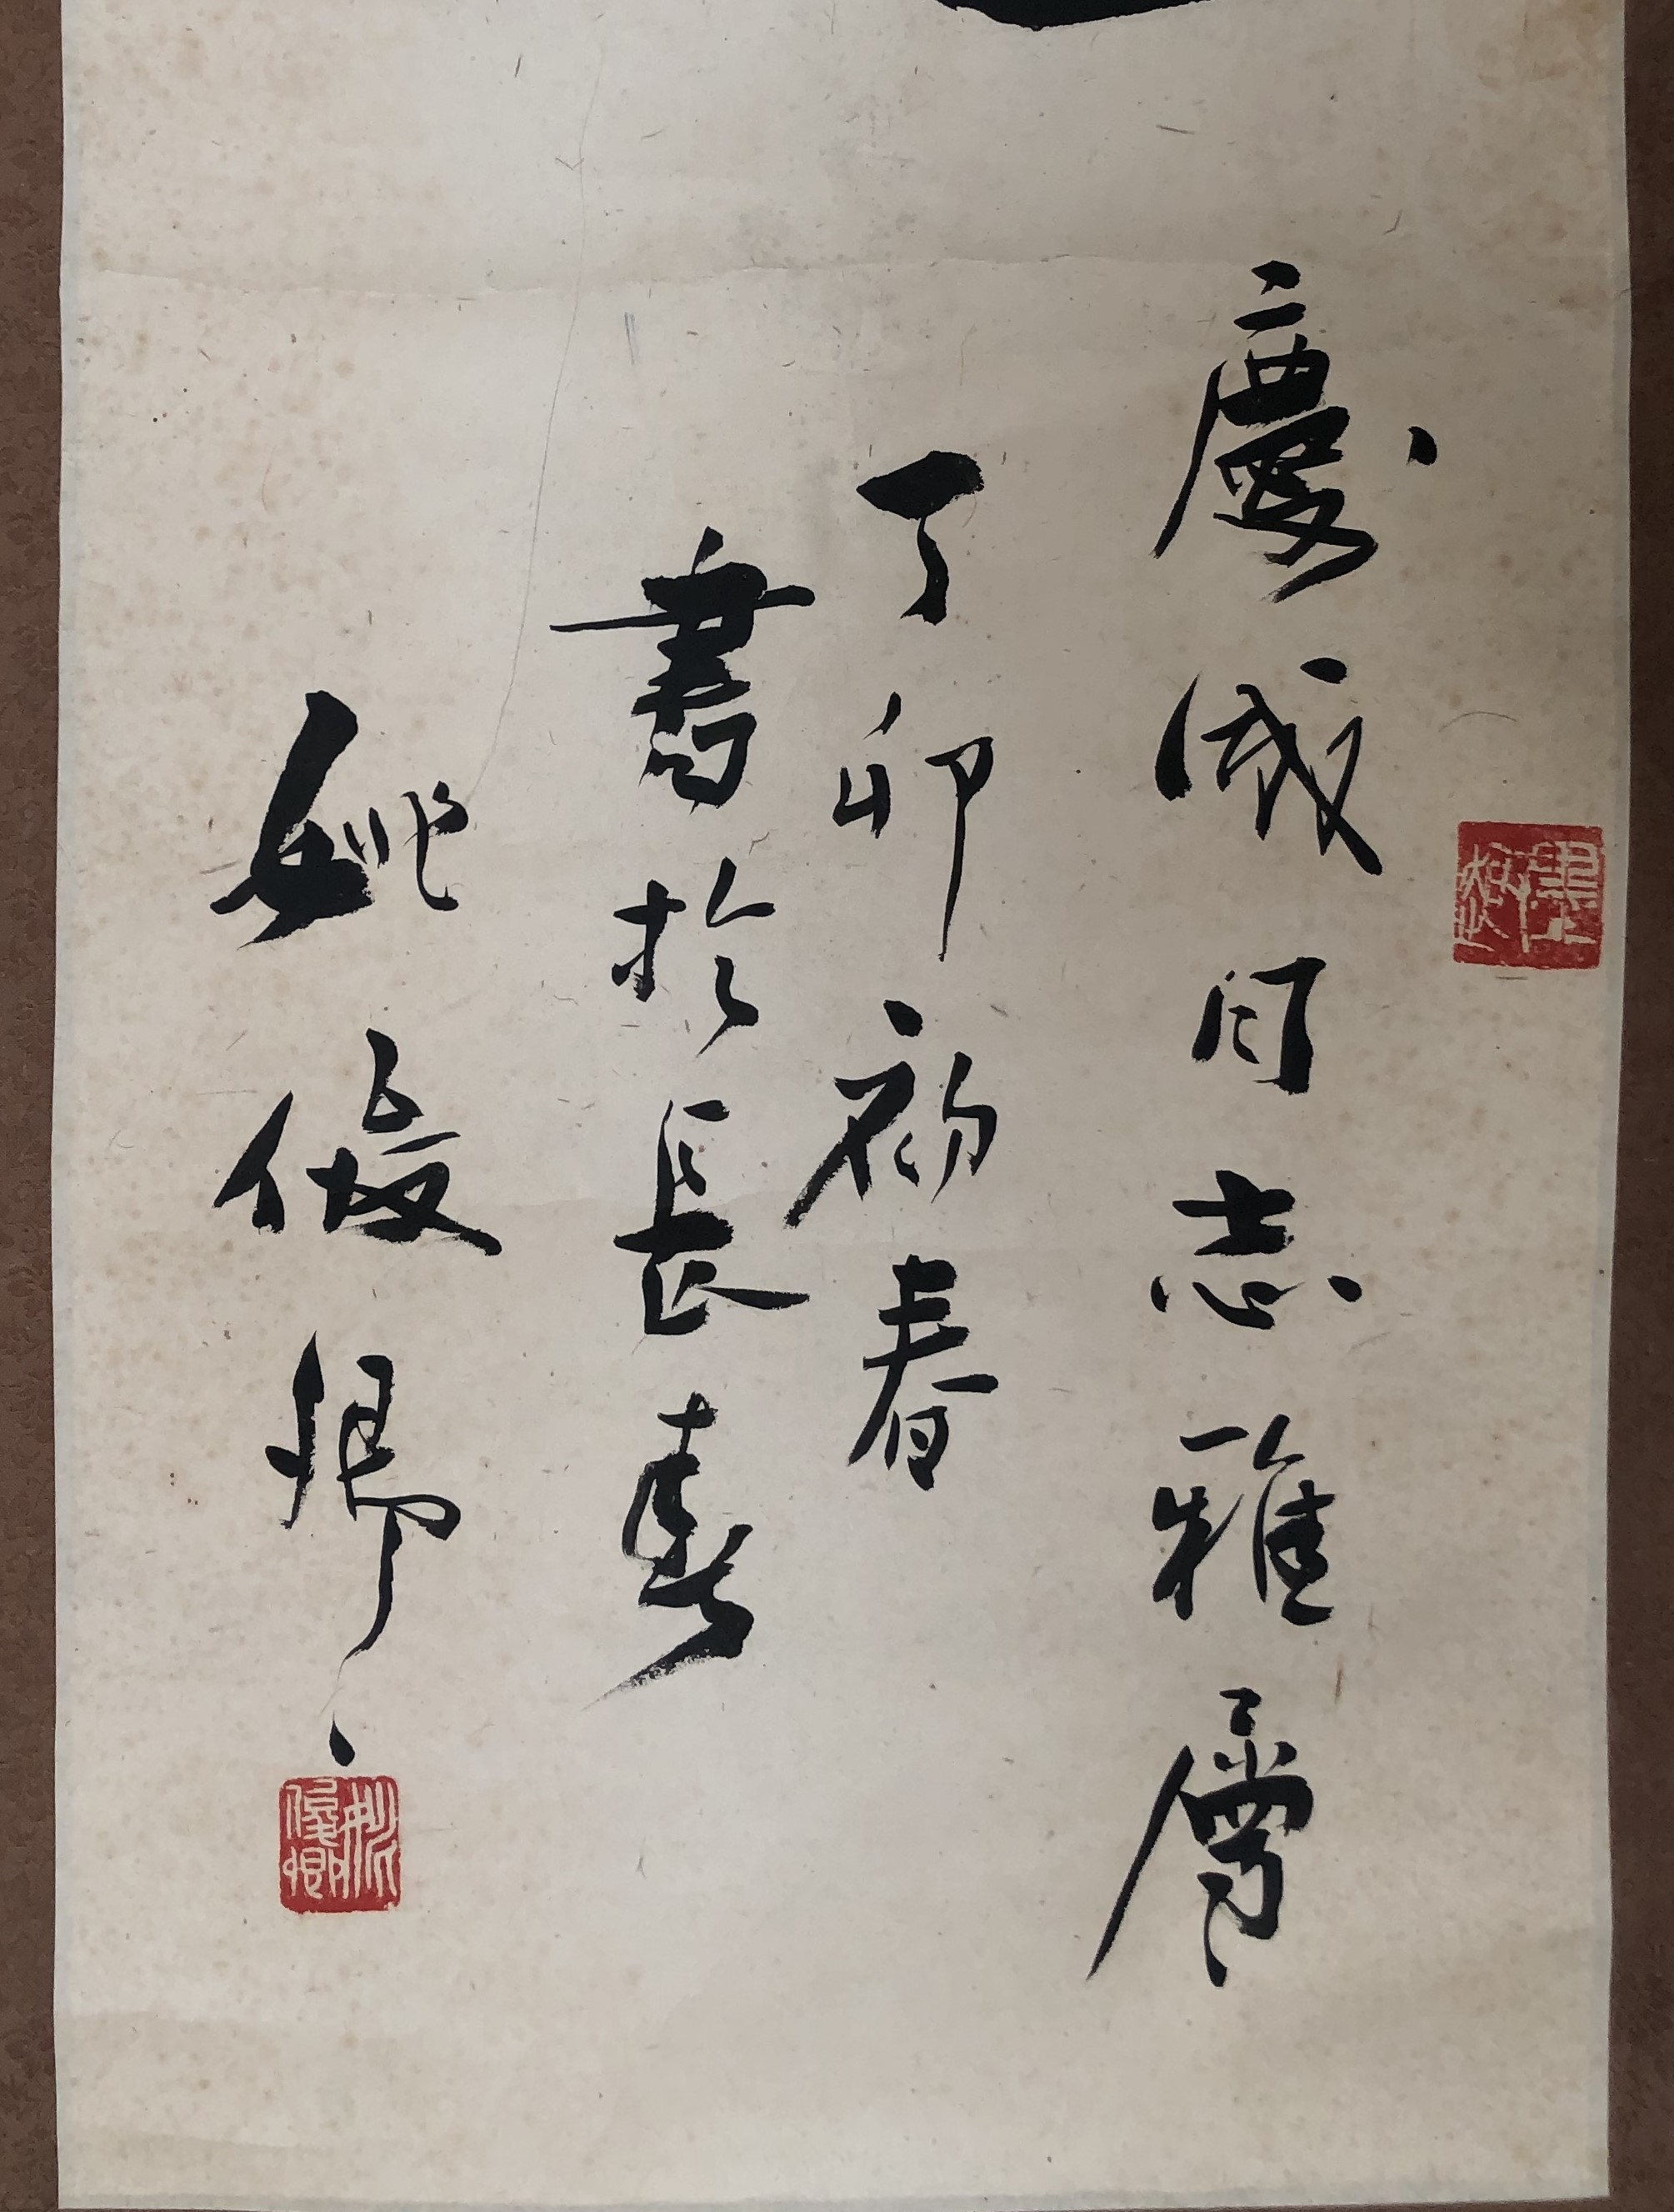 慶成同志雅屬
丁卯初春
書於長春
姚俊卿
姚俊卿